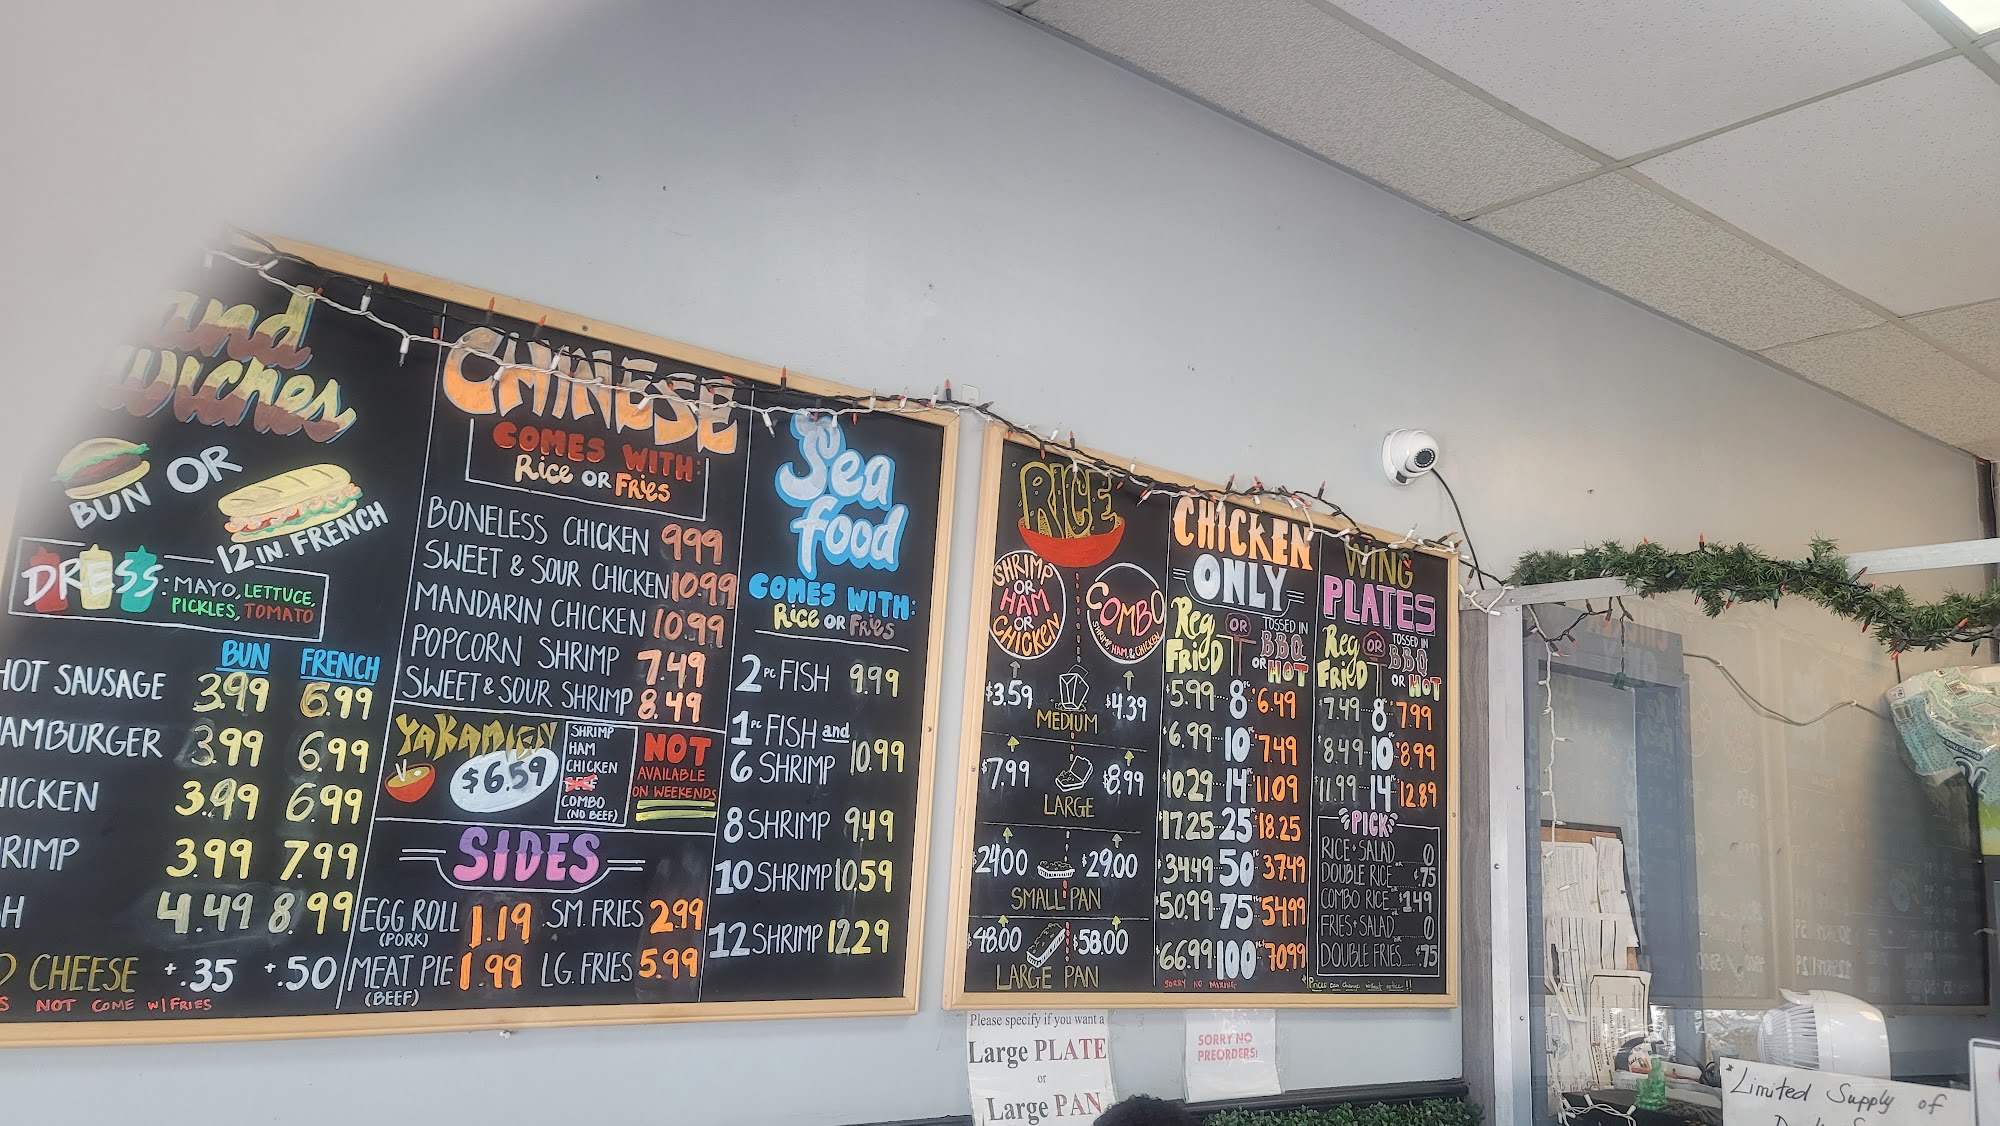 and
wiches
BUN OR
12 IN. FRENCH
DRESS: MAYO, LETTUCE,
PICKLES, TOMATO
BUN FRENCH
HOT SAUSAGE 3.99 6.99
AMBURGER 3.99 6.99
HICKEN 3.99 6.99
RIMP 3.99 7.99
H 4.49 8.99
D CHEESE +.35 +.50
S NOT COME W/ FRIES
CHINESE
COMES WITH:
Rice OR Fries
BONELESS CHICKEN 9.99
SWEET & SOUR CHICKEN 10.99
MANDARIN CHICKEN 10.99
POPCORN SHRIMP 7.49
SWEET & SOUR SHRIMP 8.49
YAKAMIEN
$6.59
SHRIMP
HAM
CHICKEN
BEEF
COMBO
(NO BEEF)
NOT
AVAILABLE
ON WEEKENDS
SIDES
EGG ROLL 1.19 SM. FRIES 2.99
(PORK)
MEAT PIE 1.99 LG. FRIES 5.99
(BEEF)
Sea
food
COMES WITH:
Rice OR Fries
2 PC FISH 9.99
1 PC FISH and
6 SHRIMP 10.99
8 SHRIMP 9.49
10 SHRIMP 10.59
12 SHRIMP 12.29
RICE
SHRIMP
OR
HAM
OR
CHICKEN
COMBO
SHRIMP, HAM & CHICKEN
$3.59 $4.39
MEDIUM
$7.99 $8.99
LARGE
$24.00 $29.00
SMALL PAN
$48.00 $58.00
LARGE PAN
CHICKEN
ONLY
Reg Fried OR TOSSED IN BBQ OR HOT
$5.99 8 PC $6.49
$6.99 10 PC $7.49
$10.29 14 PC $11.09
$17.25 25 PC $18.25
$34.99 50 PC $37.49
$50.99 75 PC $54.99
$66.99 100 PC $70.99
SORRY NO MIXING
WING
PLATES
Reg Fried OR TOSSED IN BBQ OR HOT
$7.49 8 PC $7.99
$8.49 10 PC $8.99
$11.99 14 PC $12.89
PICK
RICE + SALAD 0
OR
DOUBLE RICE $.75
OR
COMBO RICE $1.49
OR
FRIES + SALAD 0
OR
DOUBLE FRIES $.75
Prices can change without notice!!
Please specify if you want a
Large PLATE
or
Large PAN
SORRY NO
PREORDERS!
*Limited Supply of